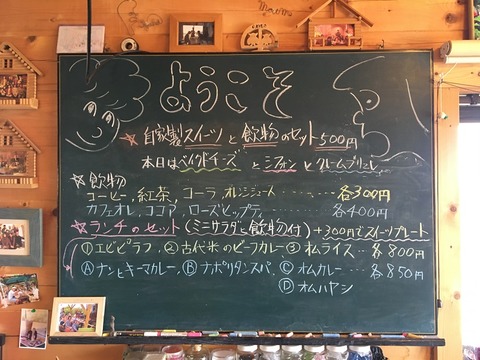 ようこそ
☆自家製スイーツと飲物のセット 500円
本日はベイクドチーズとシフォンとクレームブリュレ
☆飲物
コーヒー, 紅茶, コーラ, オレンジジュース……… 各300円
カフェオレ, ココア, ローズヒップティ 各400円
☆ランチのセット (ミニサラダと飲物付)+300円でスイーツプレート
①エビピラフ, ②古代米のビーフカレー ③オムライス… 各800円
Ⓐナンとキーマカレー, Ⓑナポリタンスパ, Ⓒオムカレー… 各850円
Ⓓオムハヤシ